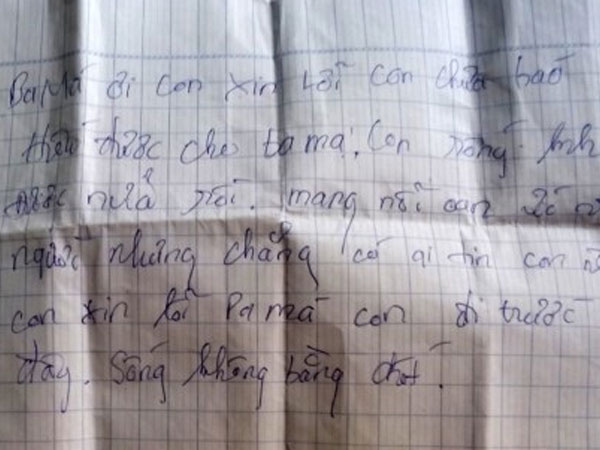 Ba Má ơi con xin lỗi con chưa báo
hiếu được cho ba má. Con không
được nữa rồi. mang nỗi oan ức
người nhưng chẳng có ai tin con
con xin lỗi Pa má con đi trước
đây. Sống không bằng chết.